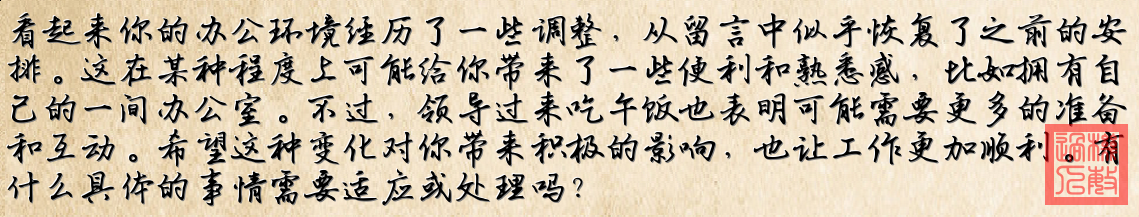 看起来你的办公环境经历了一些调整，从留言中似乎恢复了之前的安
排。这在某种程度上可能给你带来了一些便利和熟悉感，比如拥有自
己的一间办公室。不过，领导过来吃午饭也表明可能需要更多的准备
和互动。希望这种变化对你带来积极的影响，也让工作更加顺利。有
什么具体的事情需要适应或处理吗？